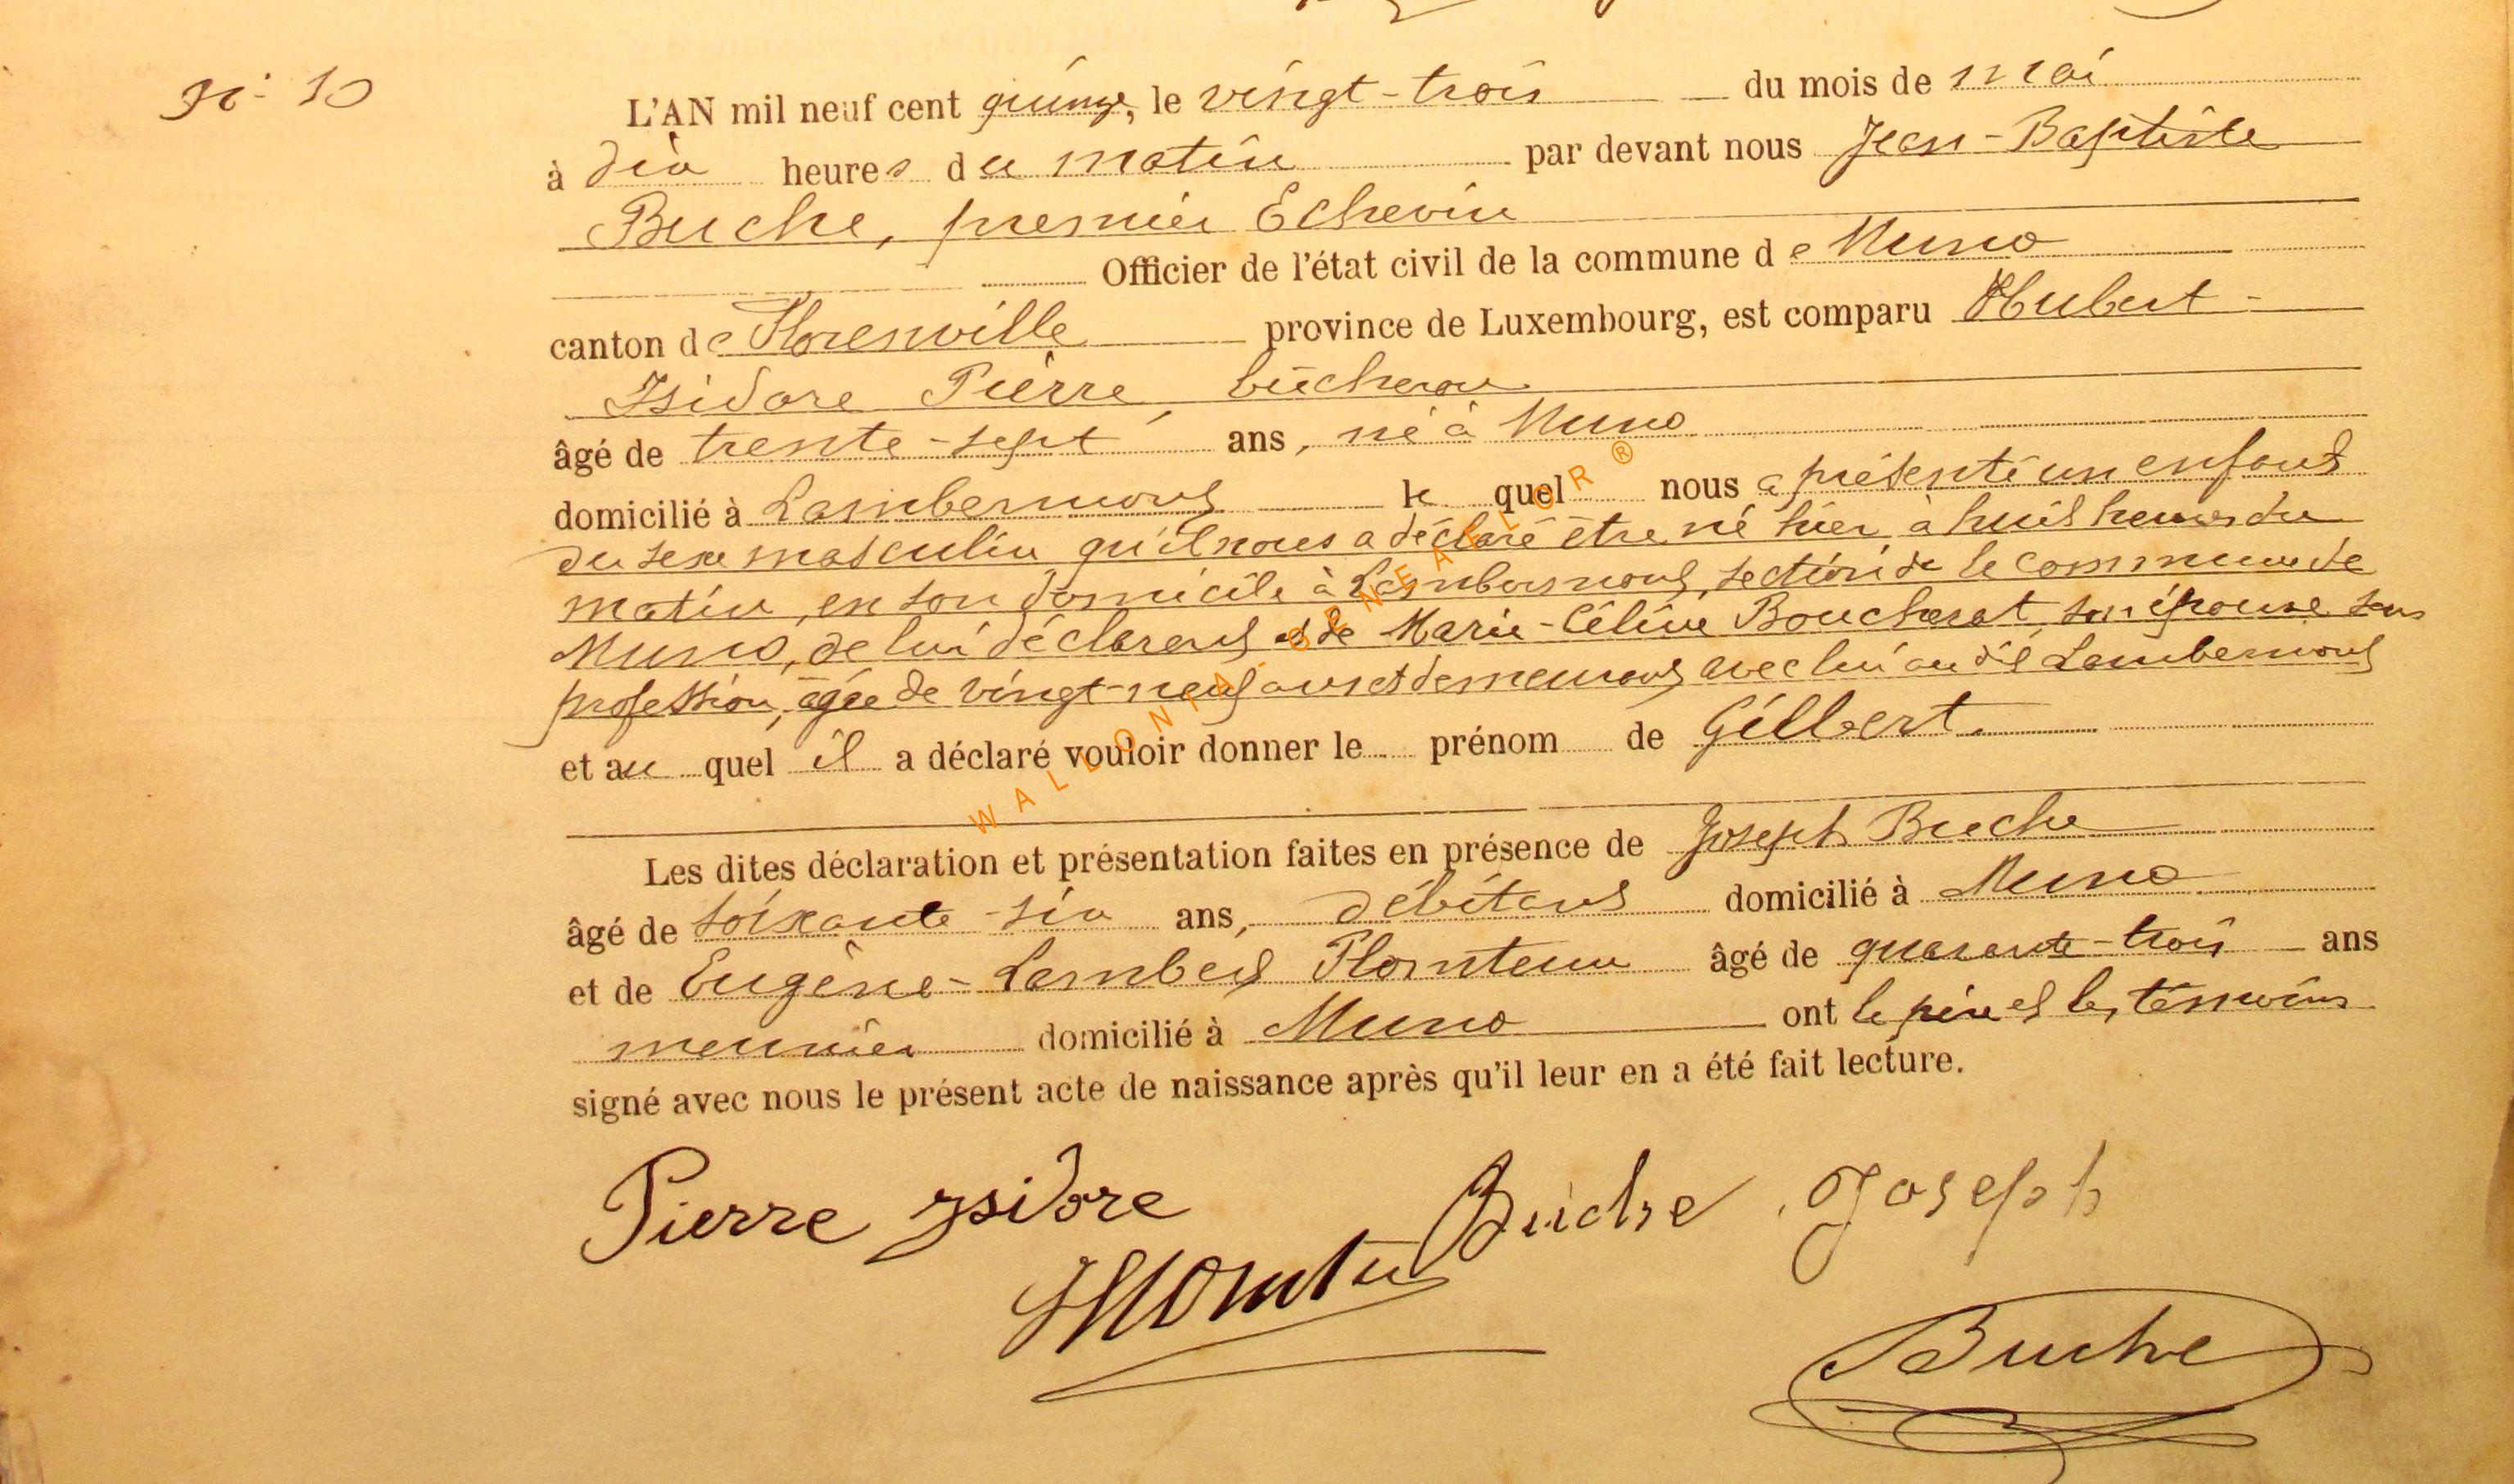 N° 10
L'AN mil neuf cent quinze, le vingt-trois du mois de mai
à dix heures du matin par devant nous Jean-Baptiste
Buche, premier Echevin
Officier de l'état civil de la commune de Muno
canton de Florenville province de Luxembourg, est comparu Hubert-
Isidore Pierre, bûcheron
âgé de trente-sept ans, né à Muno
domicilié à Lambermont lequel nous a présenté un enfant
du sexe masculin qu'il nous a déclaré être né hier à huit heures du
matin, en son domicile à Lambermont, section de la commune de
Muno, de lui déclarant et de Marie-Céline Boucherat, son épouse sans
profession, âgée de vingt-neuf ans et demeurant avec lui au dit Lambermont
et auquel il a déclaré vouloir donner le prénom de Gilbert.
Les dites déclaration et présentation faites en présence de Joseph Buche
âgé de soixante-six ans, débitant domicilié à Muno
et de Eugène-Lambert Plomteux âgé de quarante-trois ans
meunier domicilié à Muno ont le père et les témoins
signé avec nous le présent acte de naissance après qu'il leur en a été fait lecture.
Pierre Isidore Buche Joseph
Buche
WALLONIA-GENEALOR ®